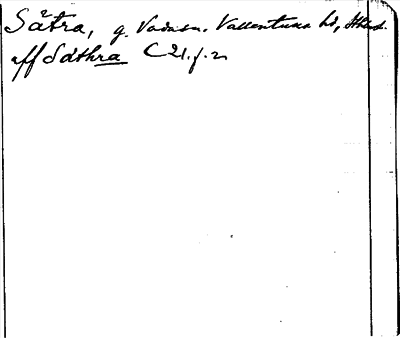 Sätra, g. Vada sn. Vallentuna hd, Sthlms l.
uff Säthra C 21:1:2